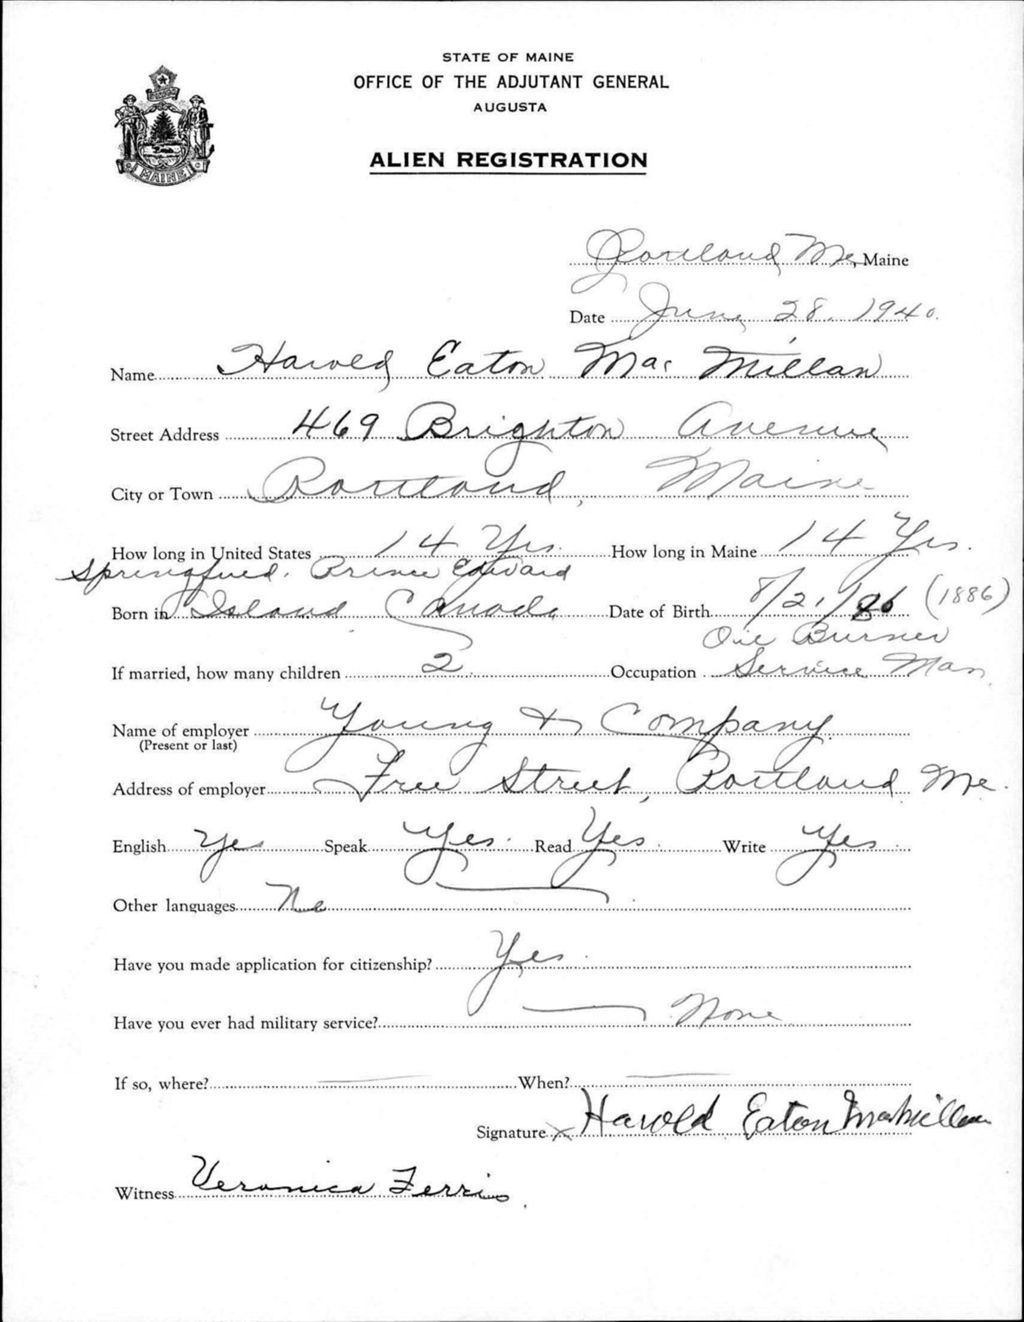 STATE OF MAINE
OFFICE OF THE ADJUTANT GENERAL
AUGUSTA
ALIEN REGISTRATION
MAINE
Portland Me, Maine
Date June 28, 1940.
Name Harold Eaton Mac Millan
Street Address 469 Brighton Avenue
City or Town Portland, Maine
How long in United States 14 Yrs. How long in Maine 14 Yrs.
Springfield, Prince Edward
Born in Island Canada Date of Birth 8/21/86 (1886)
Oil Burner
If married, how many children 2. Occupation Service Man
Name of employer Young & Company.
(Present or last)
Address of employer Free Street, Portland Me.
English Yes Speak Yes. Read Yes. Write Yes.
Other languages No
Have you made application for citizenship? Yes.
Have you ever had military service? — None
If so, where? — When? —
Signature X Harold Eaton MacMillan
Witness Veronica Ferris.